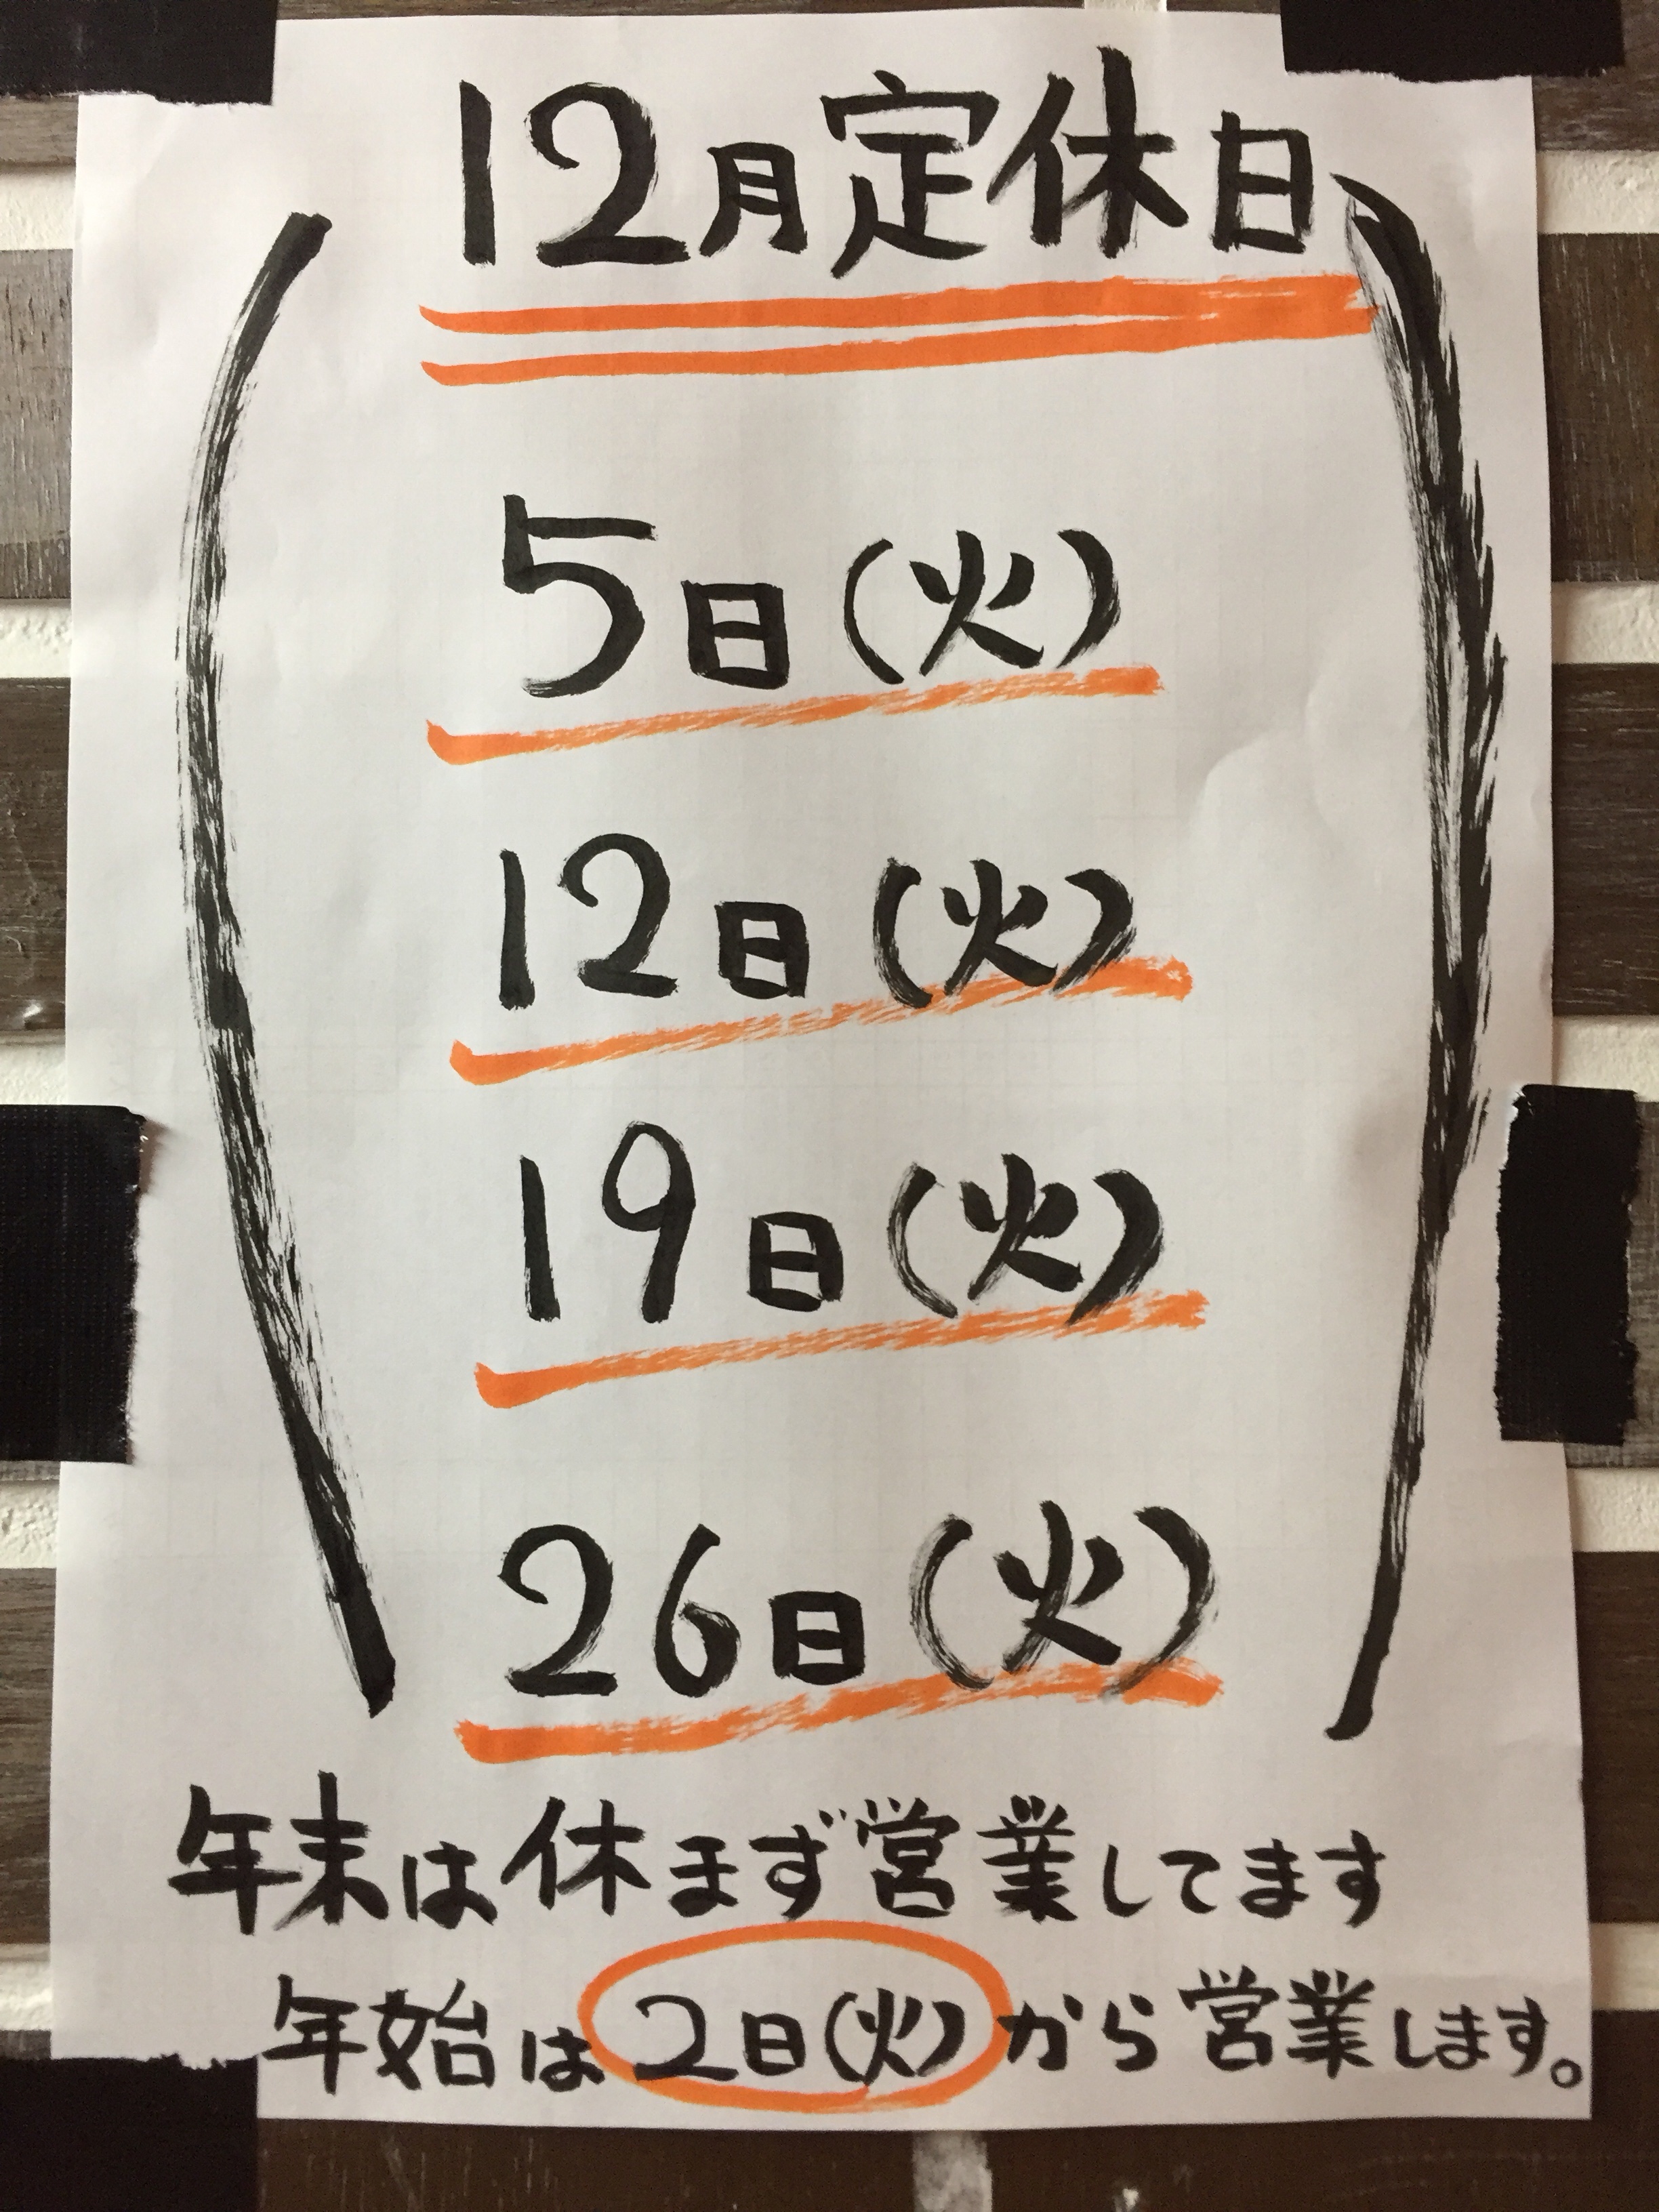 12月定休日
5日(火)
12日(火)
19日(火)
26日(火)
年末は休まず営業してます
年始は2日(火)から営業します。